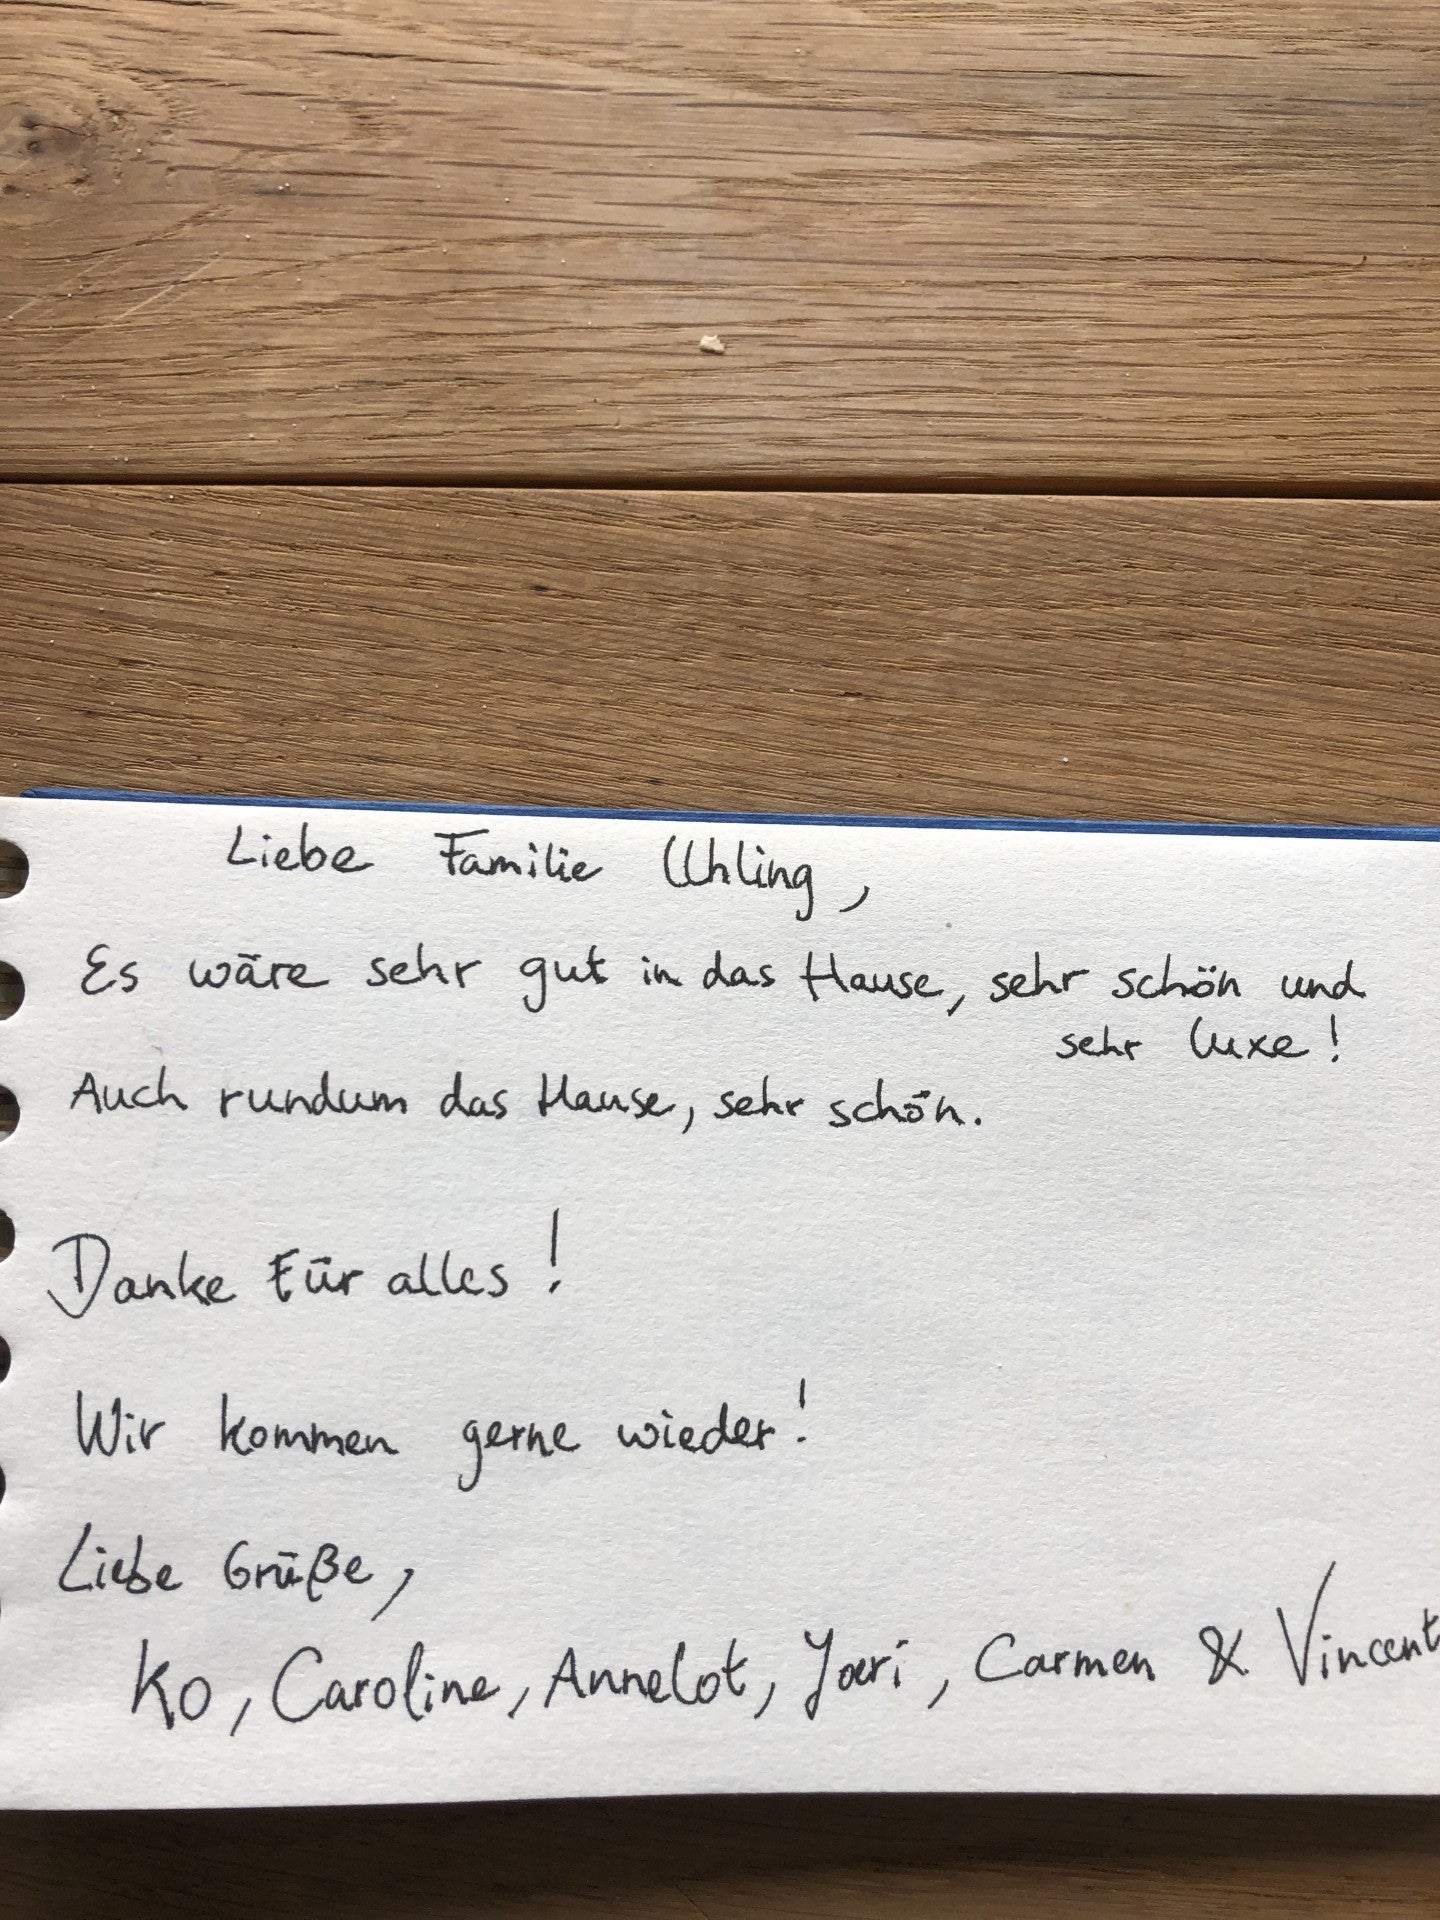 Liebe Familie Uhling,
Es wäre sehr gut in das Hause, sehr schön und
sehr luxe!
Auch rundum das Hause, sehr schön.
Danke Für alles!
Wir kommen gerne wieder!
Liebe Grüße,
Ko, Caroline, Annelot, Joeri, Carmen & Vincent